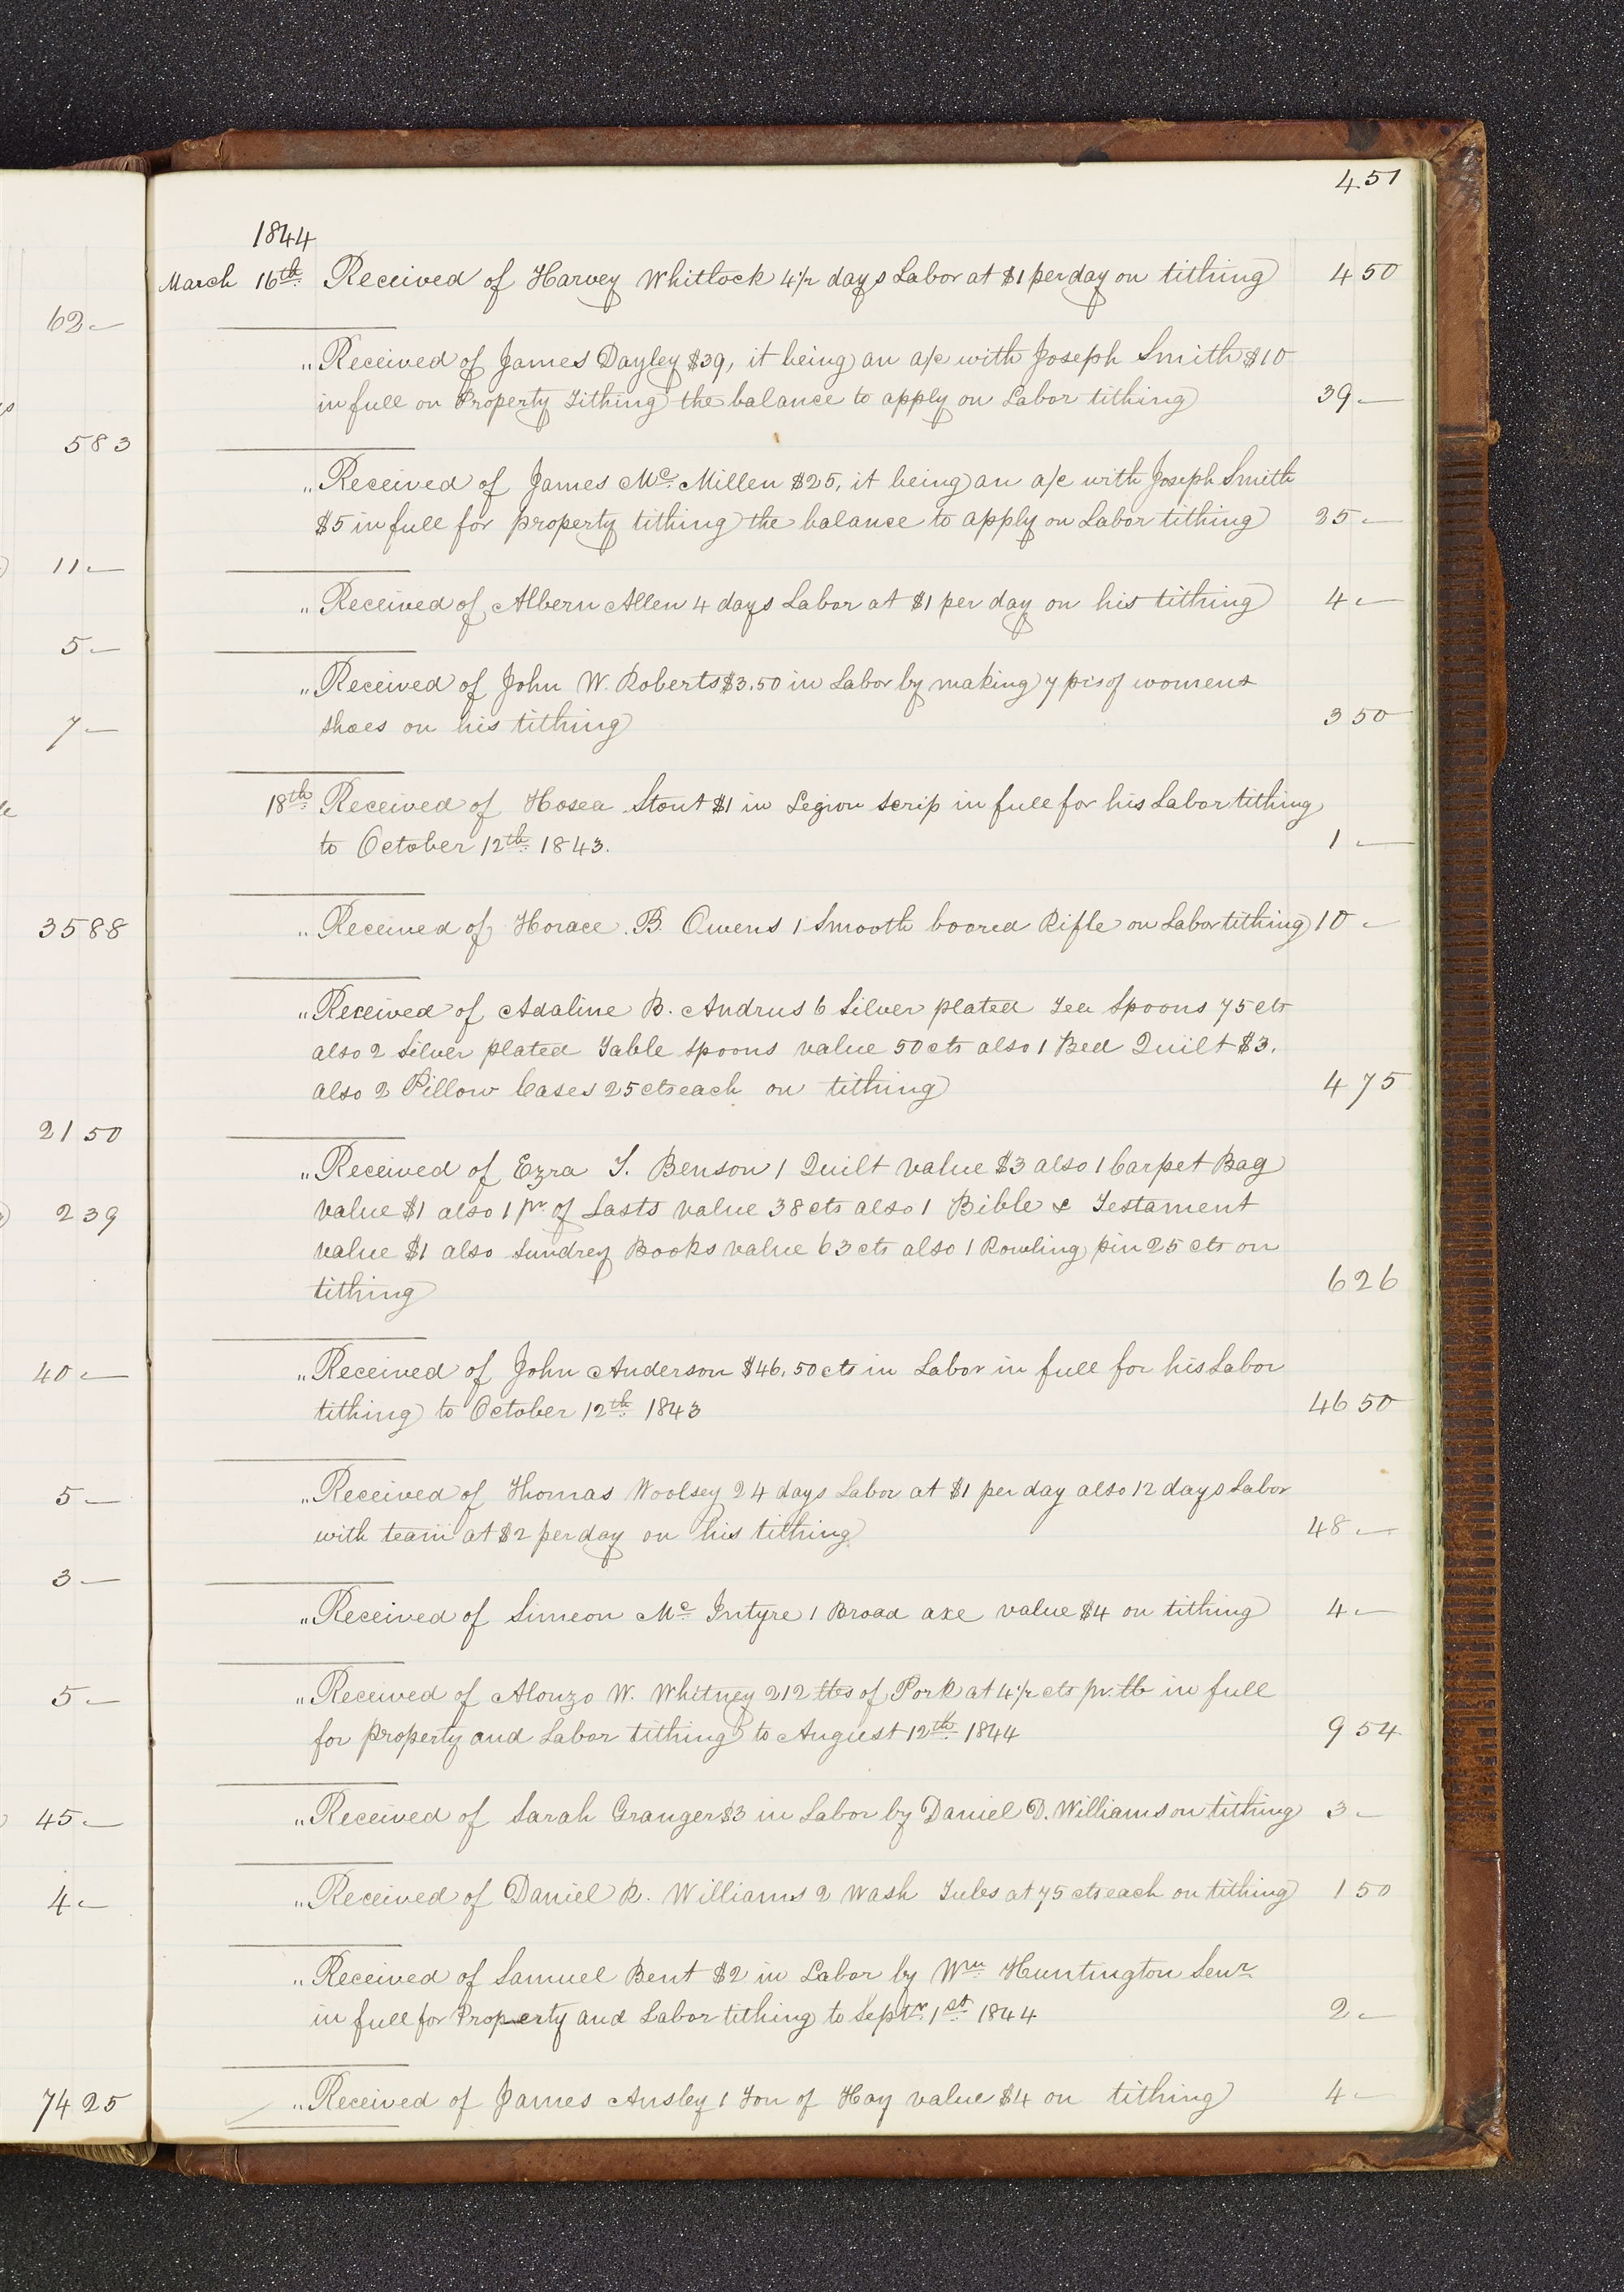 451
1844
March 16th Received of Harvey Whitlock 4 1/2 days Labor at $1 per day on tithing 4 50
" Received of James Dayley $39, it being an a/c with Joseph Smith $10
in full on Property Tithing the balance to apply on Labor tithing 39 —
" Received of James Mc Millen $25, it being an a/c with Joseph Smith
$5 in full for property tithing the balance to apply on Labor tithing 25 —
" Received of Albern Allen 4 days Labor at $1 per day on his tithing 4 —
" Received of John W. Roberts $3.50 in Labor by making 7 prs of womens
shoes on his tithing 3 50
18th Received of Hosea Stout $1 in Legion scrip in full for his Labor tithing
to October 12th 1843. 1 —
" Received of Horace B. Owens 1 Smooth boored Rifle on Labor tithing 10 —
" Received of Adaline B. Andrus 6 Silver plated Tea Spoons 75 cts
also 2 Silver plated Table Spoons value 50 cts also 1 Bed Quilt $3.
also 2 Pillow Cases 25 cts each on tithing 4 75
" Received of Ezra T. Benson 1 Quilt value $3 also 1 Carpet Bag
value $1 also 1 pr of Lasts value 38 cts also 1 Bible & Testament
value $1 also Sundrey Books value 63 cts also 1 Rowling pin 25 cts on
tithing 6 26
" Received of John Anderson $46.50 cts in Labor in full for his Labor
tithing to October 12th 1843 46 50
" Received of Thomas Woolsey 24 days Labor at $1 per day also 12 days Labor
with team at $2 per day on his tithing 48 —
" Received of Simeon Mc Intyre 1 Broad axe value $4 on tithing 4 —
" Received of Alonzo W. Whitney 212 lbs of Pork at 4 1/2 cts pr. lb in full
for property and Labor tithing to August 12th 1844 9 54
" Received of Sarah Granger $3 in Labor by Daniel D. Williams on tithing 3 —
" Received of Daniel R. Williams 2 Wash Tubs at 75 cts each on tithing 1 50
" Received of Samuel Bent $2 in Labor by Wm Huntington Senr
in full for Property and Labor tithing to Septr 1st 1844 2 —
" Received of James Ansley 1 Ton of Hay value $4 on tithing 4 —
62 —
5 83
11 —
5 —
7 —
35 88
21 50
2 39
40 —
5 —
3 —
5 —
45 —
4 —
74 25